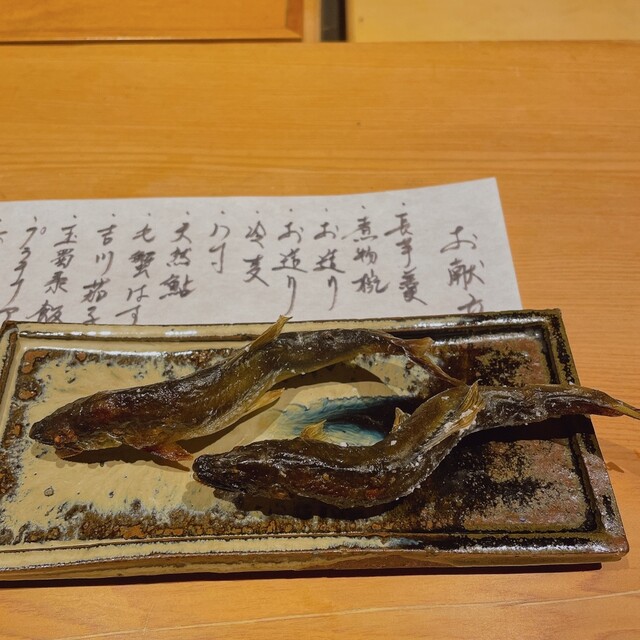 お献立
・長芋羹
・煮物椀
・お造り
・お造り
・冷麦
・八寸
・天然鮎
・毛蟹はす
・吉川茄子
・玉蜀黍飯